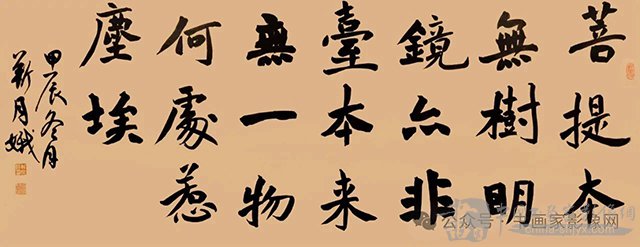 菩提本
無樹明
鏡亦非
臺本来
無一物
何處惹
塵埃
甲辰冬月
靳月娥
公众号·书画家影象网